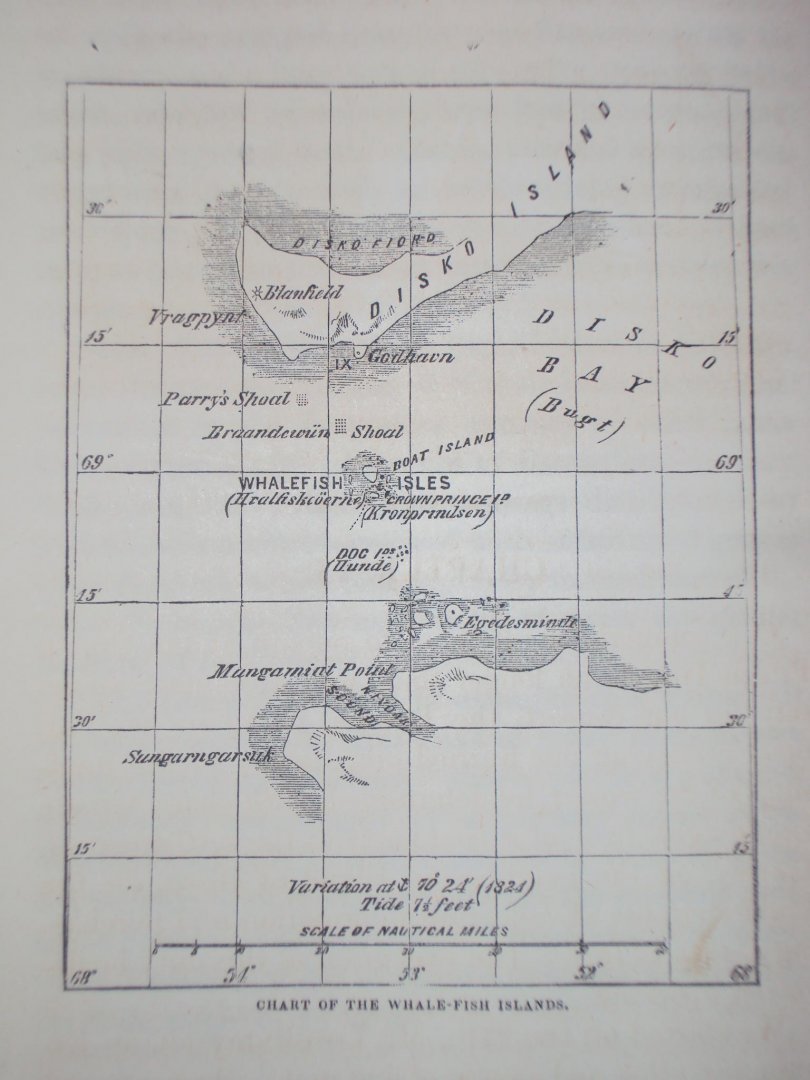 DISKO ISLAND
30' 30'
DISKO FIORD
Blanfield
Vragpynt
15' 15'
Godhavn
IX
DISKO
BAY
(Bugt)
Parry's Shoal
Braandewün Shoal
BOAT ISLAND
69° 69°
WHALEFISH ISLES
CROWNPRINCE Id
(Kronprindsen)
DOG Ids
(Hunde)
45'
Egedesminde
Mangamiat Point
SOUND
30' 30'
Sungarngarsuk
15' 15
Variation at 70° 24' (1824)
Tide 7½ feet
SCALE OF NAUTICAL MILES
68° 54° 53° 52° 68
CHART OF THE WHALE-FISH ISLANDS.